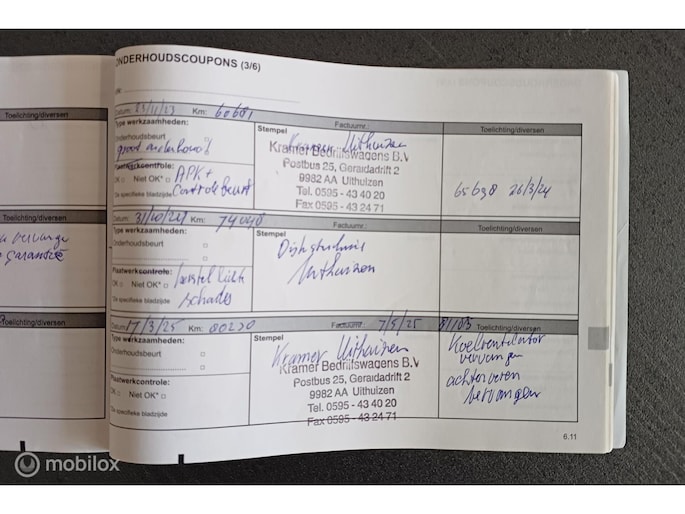 ONDERHOUDSCOUPONS (3/6)
Toelichting/diversen
Datum: 23/11/23 Km: 60601 Factuurnr.: Toelichting/diversen
Type werkzaamheden:
Onderhoudsbeurt
groot onderhoud
Plaatwerkcontrole: APK +
OK Niet OK* Controle Beurt
De specifieke bladzijde
Stempel
Kramer Uithuizen
Kramer Bedrijfswagens B.V.
Postbus 25, Geraldadrift 2
9982 AA Uithuizen
Tel. 0595 - 43 40 20
Fax 0595 - 43 24 71
65638 26/3/24
Toelichting/diversen
garantie
Datum: 31/10/24 Km: 74040 Factuurnr.: Toelichting/diversen
Type werkzaamheden:
Onderhoudsbeurt
Plaatwerkcontrole: herstel lichte
OK Niet OK* schades
De specifieke bladzijde
Stempel
Uithuizen
Toelichting/diversen
Datum: 17/3/25 Km: 80220 Factuurnr.: 7/5/25 Toelichting/diversen
Type werkzaamheden:
Onderhoudsbeurt
Plaatwerkcontrole:
OK Niet OK*
De specifieke bladzijde
Stempel
Kramer Uithuizen
Kramer Bedrijfswagens B.V.
Postbus 25, Geraldadrift 2
9982 AA Uithuizen
Tel. 0595 - 43 40 20
Fax 0595 - 43 24 71
Koelventilator
vervangen
achterveren
vervangen
6.11
mobilox